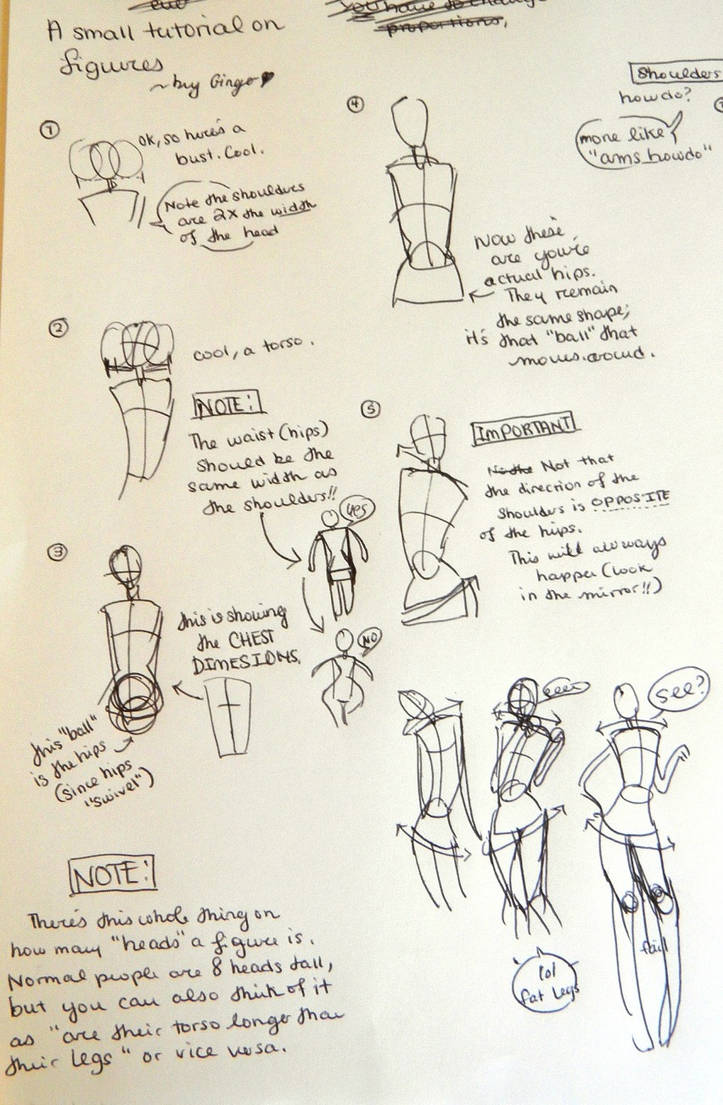 A small tutorial on
figures
~by Ginger
You have to change
proportions,
①
Ok, so here's a
bust. Cool.
Note the shoulders
are 2X the width
of the head
②
cool, a torso.
NOTE:
The waist (hips)
should be the
same width as
the shoulders!!
yes
NO
③
this is showing
the CHEST
DIMESIONS.
this "ball"
is the hips
(since hips
"swivel")
NOTE:
There's this whole thing on
how many "heads" a figure is.
Normal people are 8 heads tall,
but you can also think of it
as "are their torso longer than
their legs" or vice versa.
④
Now these
are you're
actual hips.
They remain
the same shape;
it's that "ball" that
moves around.
⑤
IMPORTANT
Not that
the direction of the
shoulders is OPPOSITE
of the hips.
This will always
happen (look
in the mirror!!)
see?
lol
fat legs
fail
Shoulders
how do?
more like
"arms how do"